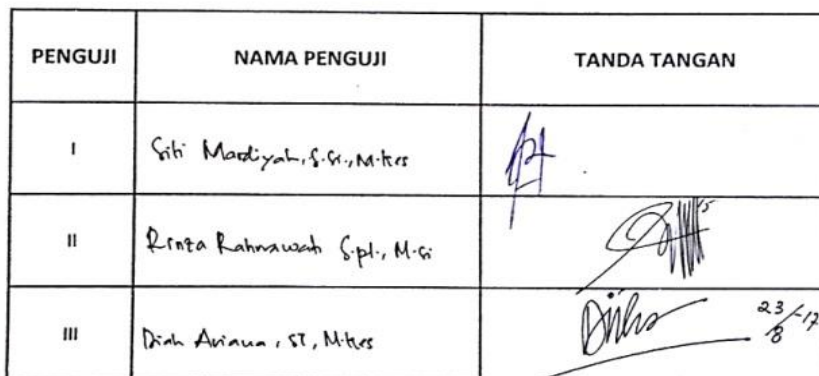 PENGUJI NAMA PENGUJI TANDA TANGAN
I Siti Mardiyah, S.Si., M.Kes
II Rinza Rahmawati S.pd., M.Si
III Diah Ariana, ST, M.Kes 23/8-17